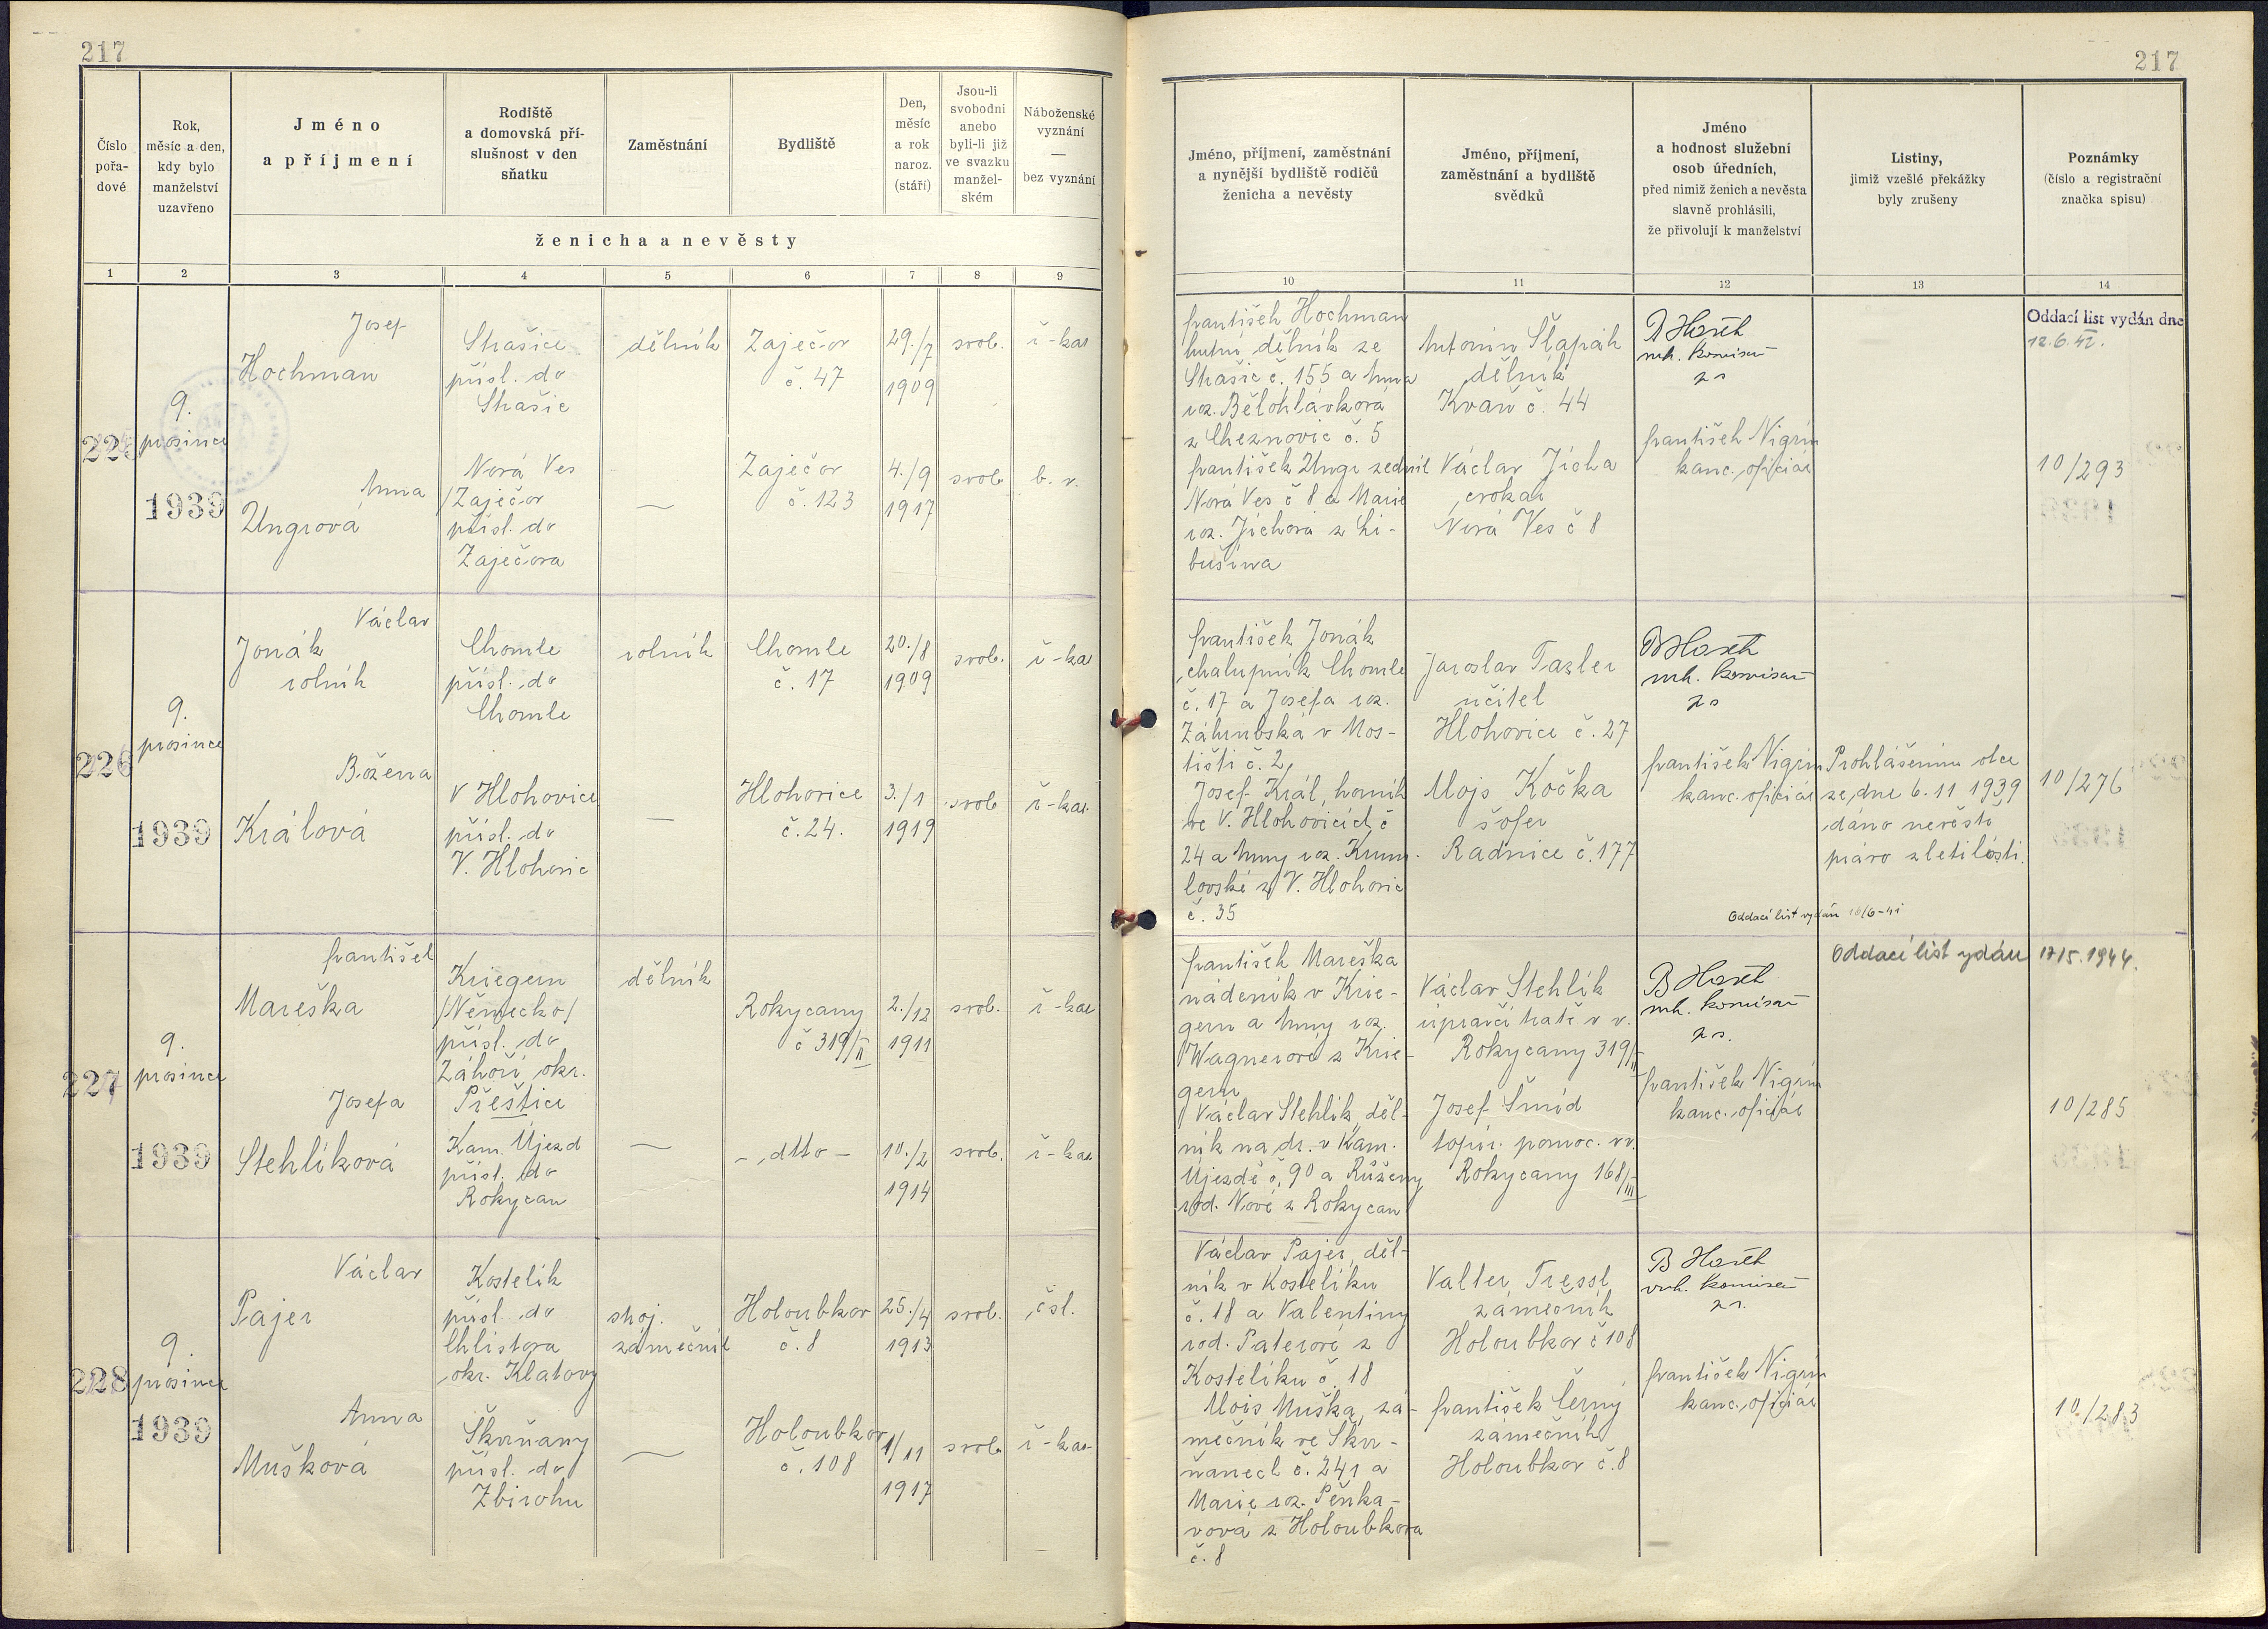 217
217
Číslo pořa-dové
Rok, měsíc a den, kdy bylo manželství uzavřeno
Jméno a příjmení
Rodiště a domovská pří-slušnost v den sňatku
Zaměstnání
Bydliště
Den, měsíc a rok naroz. (stáří)
Jsou-li svobodni anebo byli-li již ve svazku manžel-ském
Náboženské vyznání — bez vyznání
ženicha a nevěsty
Jméno, příjmení, zaměstnání a nynější bydliště rodičů ženicha a nevěsty
Jméno, příjmení, zaměstnání a bydliště svědků
Jméno a hodnost služební osob úředních, před nimiž ženich a nevěsta slavně prohlásili, že přivolují k manželství
Listiny, jimiž vzešlé překážky byly zrušeny
Poznámky (číslo a registrační značka spisu)
1 2 3 4 5 6 7 8 9 10 11 12 13 14
225
9.
prosince
1939
Josef
Hochman
Strašice
přísl. do
Strašic
dělník
Zaječov
č. 47
29./7
1909
svob.
ř-kat
Anna
Ungrová
Nová Ves
/Zaječov
přísl. do
Zaječova
—
Zaječov
č. 123
4./9
1917
svob.
b. v.
František Hochman
hutní dělník ze
Strašic č. 155 a Anna
roz. Bělohlávková
z Cheznovic č. 5
František Ungr zedník
Nová Ves č 8 a Marie
roz. Jíchová z Li-
bušína
Antonín Šlapák
dělník
Kvaň č. 44
Václav Jícha
cvokař
Nová Ves č 8
mh. komisař
František Nigrin
kanc. oficiál
Oddací list vydán dne
12.6.42.
10/293
226
9.
prosince
1939
Václav
Jonák
rolník
Chomle
přísl. do
Chomle
rolník
Chomle
č. 17
20./8
1909
svob.
ř-ka
Božena
Králová
V Hlohovice
přísl. do
V. Hlohovic
—
Hlohovice
č. 24.
3./1
1919
svob
ř-kat.
František Jonák
chalupník Chomle
č. 17 a Josefa roz.
Záhrubská v Mos-
tišti č. 2
Josef Král, horník
ve V. Hlohovicích č
24 a Anny roz. Krum-
lovské z V. Hlohovic
č. 35
Jaroslav Tazler
učitel
Hlohovice č. 27
Alojs Kočka
šofer
Radnice č. 177
mh. komisař
František Nigrin
kanc. oficiál
Prohlášením otce
ze dne 6. 11 1939
dáno nevěstě
právo zletilosti.
10/276
Oddací list vydán 10/6-41
227
9.
prosince
1939
František
Mareška
Kriegern
/Německo/
přísl. do
Záhoří okr.
Přeštice
dělník
Rokycany
č 319/II
2./12
1911
svob.
ř-kat
Josefa
Stehlíková
Kam. Újezd
přísl. do
Rokycan
—
- dtto -
10./2
1914
svob.
ř-kat.
František Mareška
nádeník v Krie-
gern a Anny roz.
Wagnerové z Krie-
gern
Václav Stehlík, děl-
ník na dr. v Kam.
Újezdě č. 90 a Růženy
rod. Nové z Rokycan
Václav Stehlík
úpravčí tratě v v.
Rokycany 319/II
Josef Šmíd
topič. pomoc. v v.
Rokycany 168/III
mh. komisař
František Nigrin
kanc. oficiál
Oddací list vydán 17/5. 1944.
10/285
228
9.
prosince
1939
Václav
Pajer
Kostelík
přísl. do
Chlistova
okr. Klatovy
stroj.
zámečník
Holoubkov
č. 8
25./4
1913
svob.
čsl.
Anna
Mušková
Škvrňany
přísl. do
Zbirohu
—
Holoubkov
č. 108
1/11
1917
svob.
ř-kat.
Václav Pajer, děl-
ník v Kostelíku
č. 18 a Valentiny
rod. Paterové z
Kostelíku č. 18
Alois Muška, zá-
mečník ve Škvr-
ňanech č. 241 a
Marie roz. Pěnka-
vová z Holoubkova
č. 8
Valter Tressl
zámečník
Holoubkov č 108
František Černý
zámečník
Holoubkov č. 8
mh. komisař
František Nigrin
kanc. oficiál
10./283